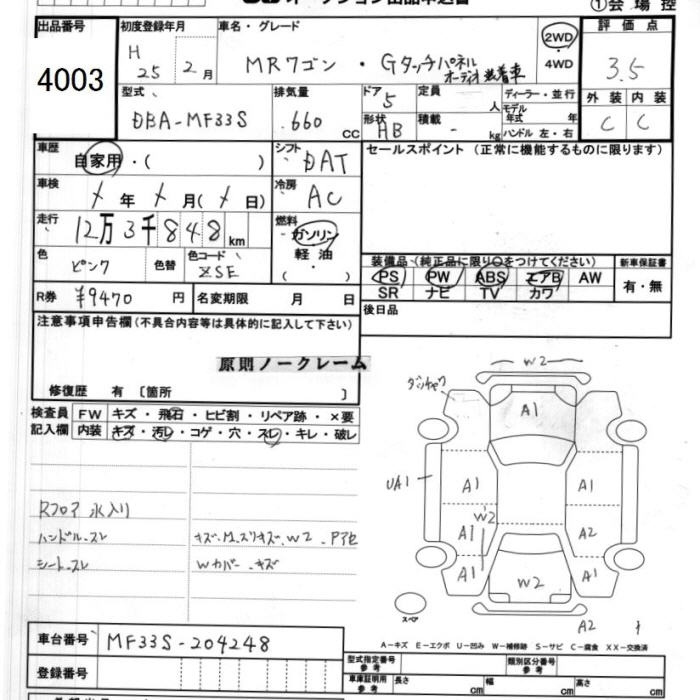 ①会場控
出品番号
4003
初度登録年月
H
25 2月
車名・グレード
MRワゴン・Gタッチパネル
オーディオ装着車
2WD
・
4WD
評価点
3.5
外装 内装
C C
型式
DBA-MF33S
排気量
660 cc
ドア
5
形状
HB
定員
人
積載
- kg
ディーラー・並行
モデル
年式 年
ハンドル 左・右
車歴
自家用・( )
シフト
DAT
セールスポイント (正常に機能するものに限ります)
車検
年 月( 日)
冷房
AC
走行
12万3千848km
燃料
ガソリン
軽油
・( )
色
ピンク
色替
色コード
ZSE
装備品(純正品に限り○をつけてください)
PS PW ABS エアB AW
SR ナビ TV カワ
新車保証書
有・無
R券 ¥9470円
名変期限 月 日
後日品
注意事項申告欄(不具合内容等は具体的に記入して下さい)
原則ノークレーム
修復歴 有〔箇所 〕
検査員
記入欄
FW キズ・飛石・ヒビ割・リペア跡・×要
内装 キズ・汚レ・コゲ・穴・スレ・キレ・破レ
Rフロア 水入り
ハンドル-スレ
シート-スレ
Wカバー-キズ
W2
A1
UA1
A1
A1
W2
A1
A2
A1
A1
W2
スペア
A2
A-キズ E-エクボ U-凹み W-補修跡 S-サビ C-腐食 XX-交換済
車台番号 MF33S-204248
登録番号
型式指定番号
参考
類別区分番号
参考
車庫証明用
参考
長さ cm
幅 cm
高さ cm